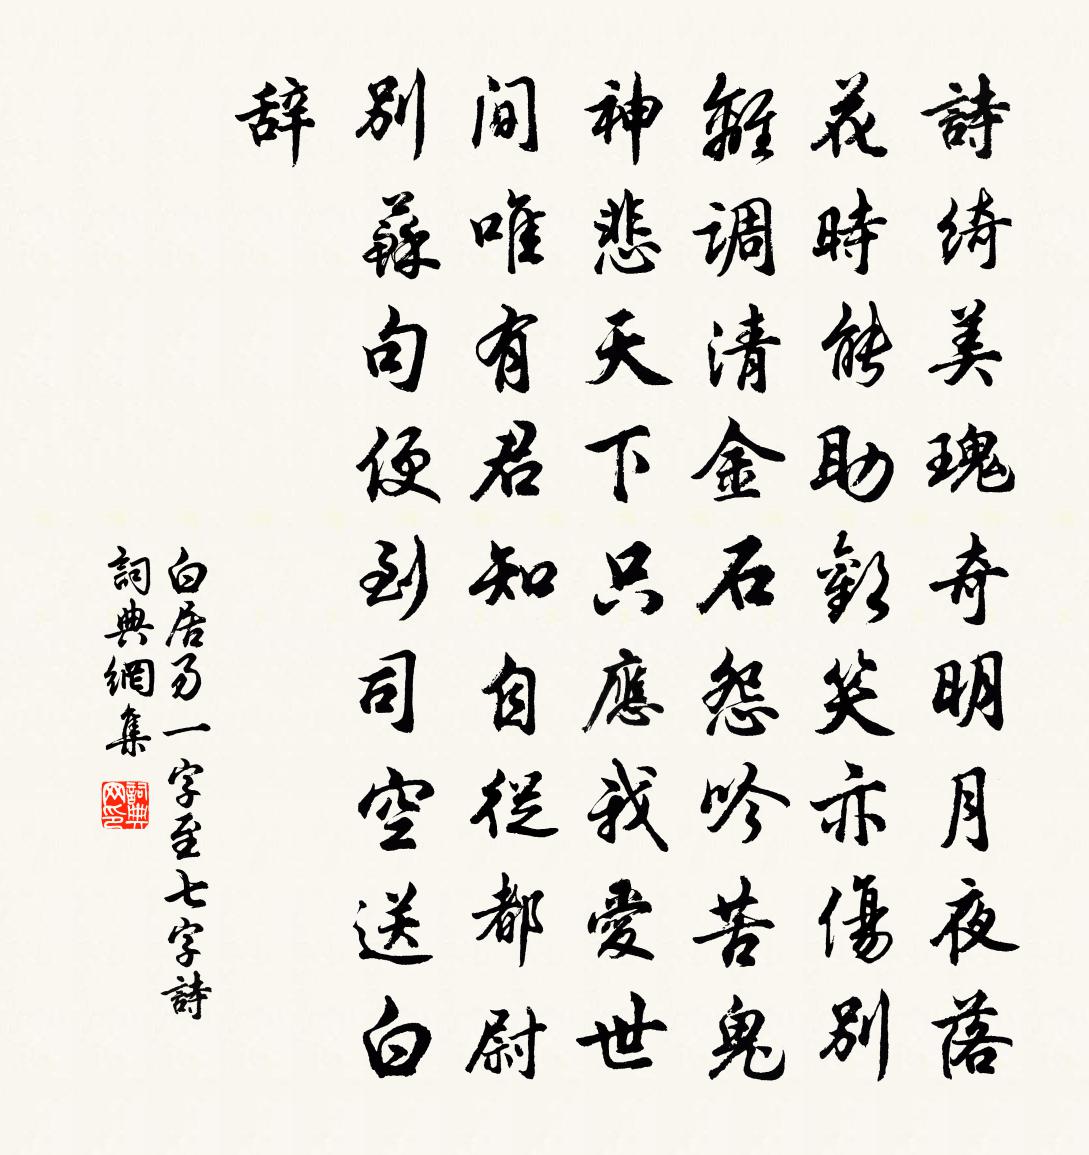 詩綺美瑰奇明月夜落
花時能助歡笑亦傷別
離调清金石怨吟苦鬼
神悲天下只應我愛世
間唯有君知自從都尉
別蘇句便到司空送白
辞
白居易一字至七字詩
詞典網集
詞典网印